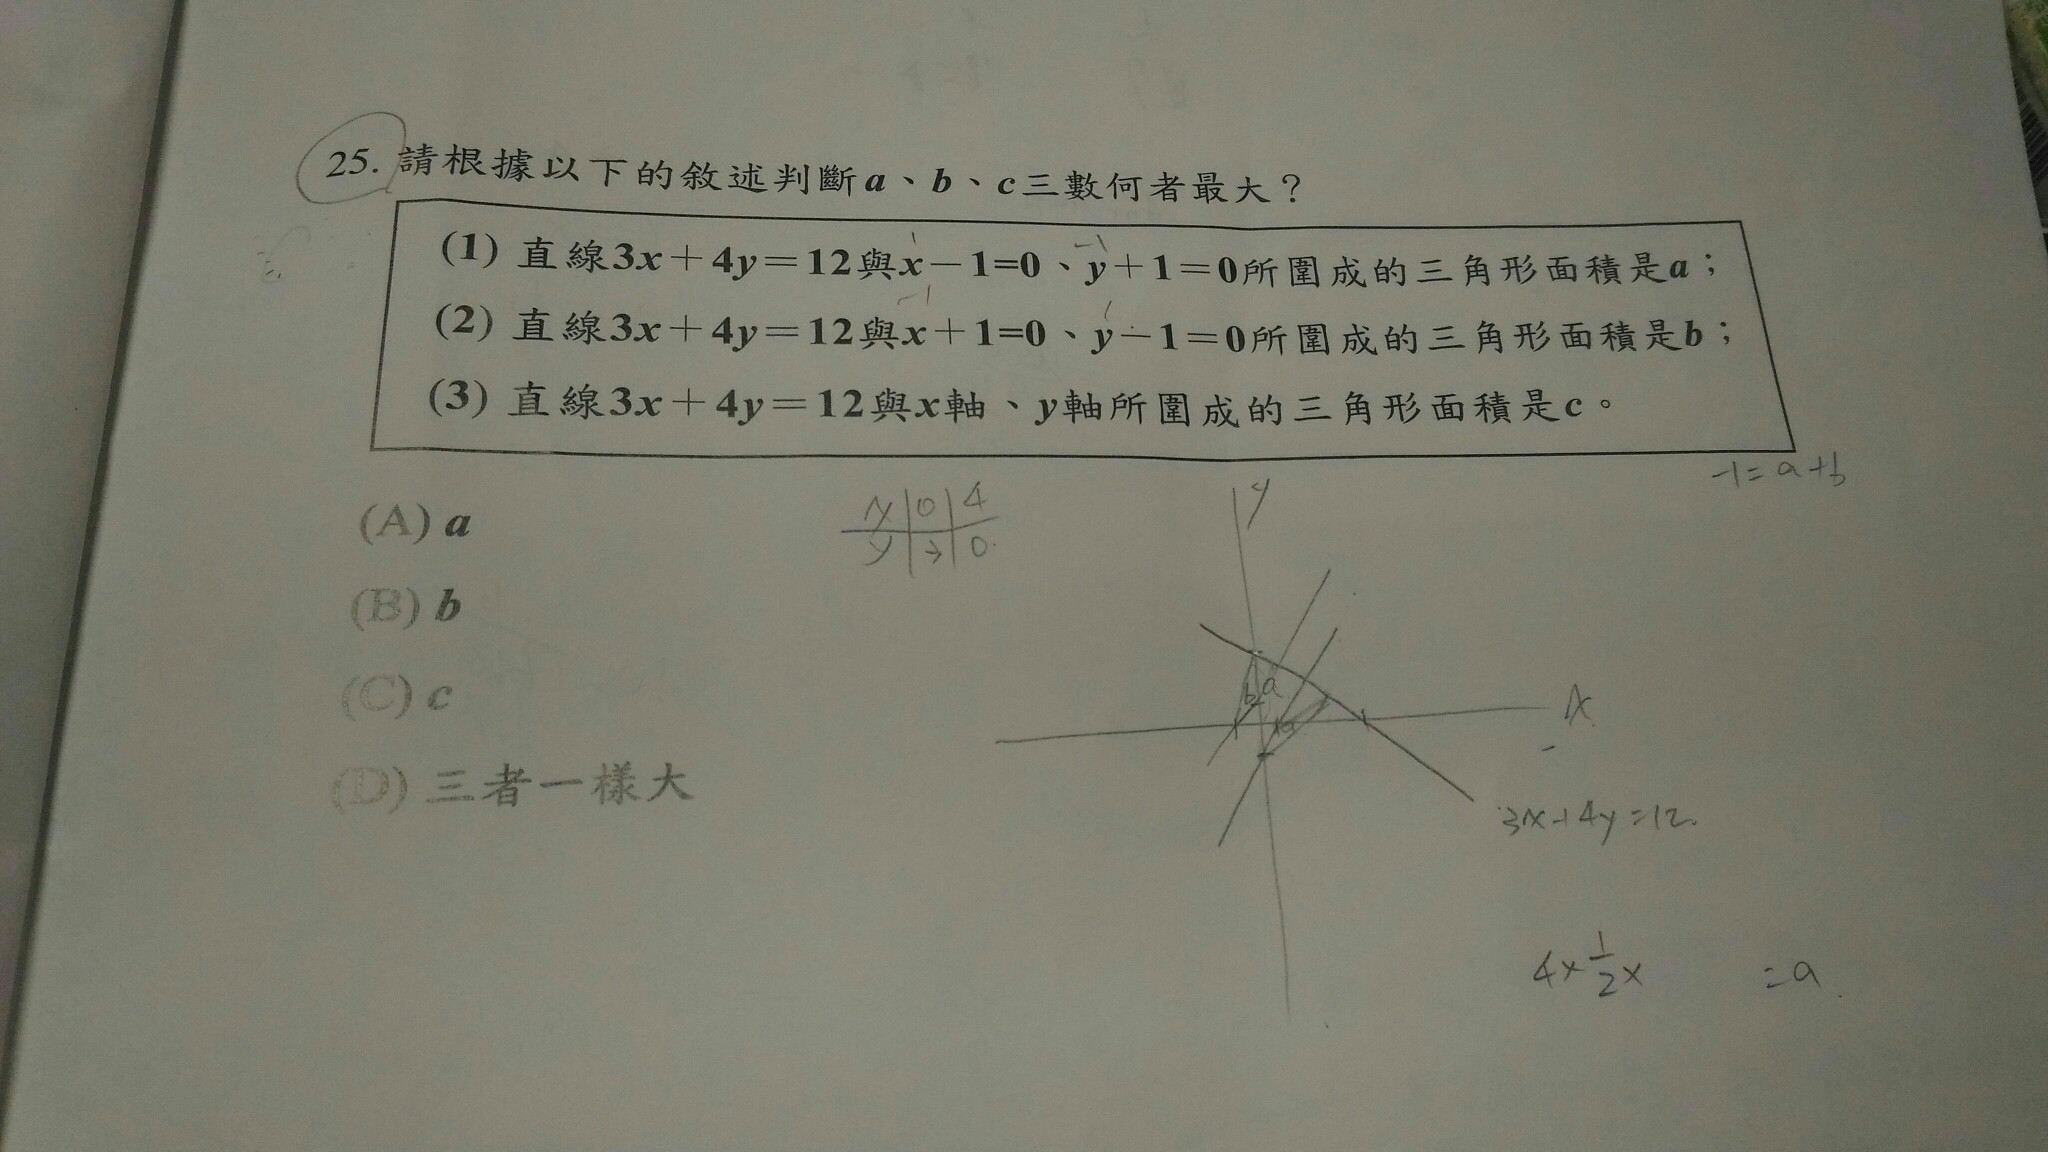 25. 請根據以下的敘述判斷a、b、c三數何者最大？
(1) 直線3x＋4y＝12與x－1=0、y＋1＝0所圍成的三角形面積是a；
(2) 直線3x＋4y＝12與x＋1=0、y－1＝0所圍成的三角形面積是b；
(3) 直線3x＋4y＝12與x軸、y軸所圍成的三角形面積是c。
-1=a+b
(A) a
x 0 4
y 3 0
y
(B) b
b a
(C) c
a
x
(D) 三者一樣大
3x+4y=12
4×1/2× =a